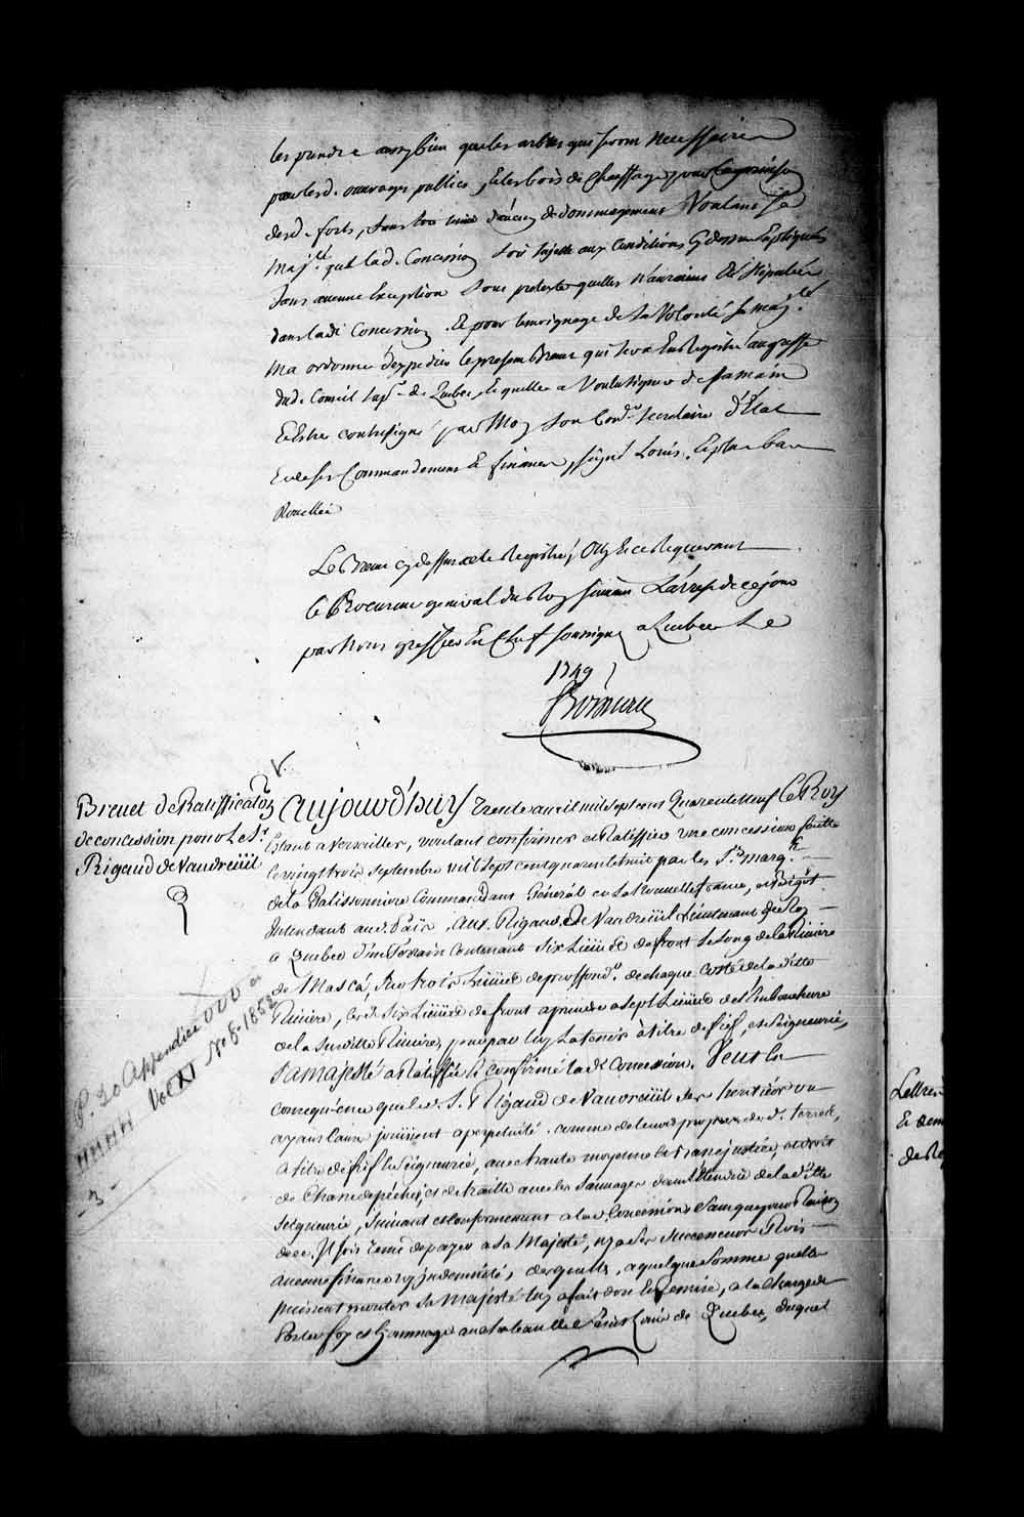 les prendre aussy bien que les arbres qui seront necessaires
pour lesd. ouvrages publics, et les bois de chauffage pour la garnison
desd. forts, sans estre tenu d'aucun dedommagement Voulant Sa
Maj.té que lad. Concession soit sujette aux Conditions cy dessus Expliquées
sans aucune Exception sous pretexte quelles n'auroient été stipulées
dans lad. Concession. Et pour temoignage de sa volonté sa maj.té
ma ordonné d'expedier le present Brevet qui sera Enregistré au greffe
dud. Conseil sup.r de Quebec, lequel elle a Voulu signer de sa main
Et Estre contresigné par Moy son Con.er Secretaire d'Etat
Et de ses Commandemens & finances, signé Louis, Et plus bas
Rouillé
Le Brevet cy dessus a été Registré, Ouy Et ce Requerant
le Procureur general du Roy suivant L'arrest de ce jour
par Nous greffier En Chef soussigné a Quebec Le
1749
Boisseau
Brevet de Ratiffication
de concession pour Le S.r
Rigaud de Vaudreüil
Aujourd'huy trente avril mil sept cent Quarente neuf Le Roy
Etant a Versailles, voulant confirmer et Ratiffier une concession faitte
le vingt trois septembre mil sept cent quarente huit par les S.rs marq.is
de la Galissonniere Commandant Général en la Nouvelle france, et Bigot
Intendant aud. Païs, Au S. Rigaud De Vaudreüil Lieutenant de Roy
a Quebec d'un Terrain contenant Six Lieües de front Le Long de la Riviere
de Mascá, sur trois Lieües de proffond.r de chaque costé de la ditte
Riviere, les d. Six Lieües de front a prendre a sept Lieües de l'Embouchure
de la susditte Riviere, pour par luy La tenir à titre de fief, et Seigneurie,
Sa majesté a Ratiffié & confirmé la d. Concession. Veut En
consequence que le d. S. Rigaud de Vaudreüil ses heritiers ou
ayans cause joüissent a perpetuité comme de leur propre de d. terrein,
A titre de fief & Seigneurie, avec haute moyenne & basse justice, et droit
de Chasse, de pêche, et de traitte avec les Sauvages dans l'Etendüe de la ditte
Seigneurie, Suivant et Conformement a la d. Concession Sans que pour Raison
de ce Il soit tenu de payer a Sa Majesté, ny a Ses Successeurs Rois
aucune finance ny indemnité, desquelles, a quelque Somme quelles
puissent monter Sa Majesté luy a fait don Et Remise, a la charge de
Porter foy et hommage au chateau de Saint Loüis de Quebec, duquel
P. 20 Appendice OOO a
HHHH Vol XI No 6-1852
3
Lettres
Et dem
de Re